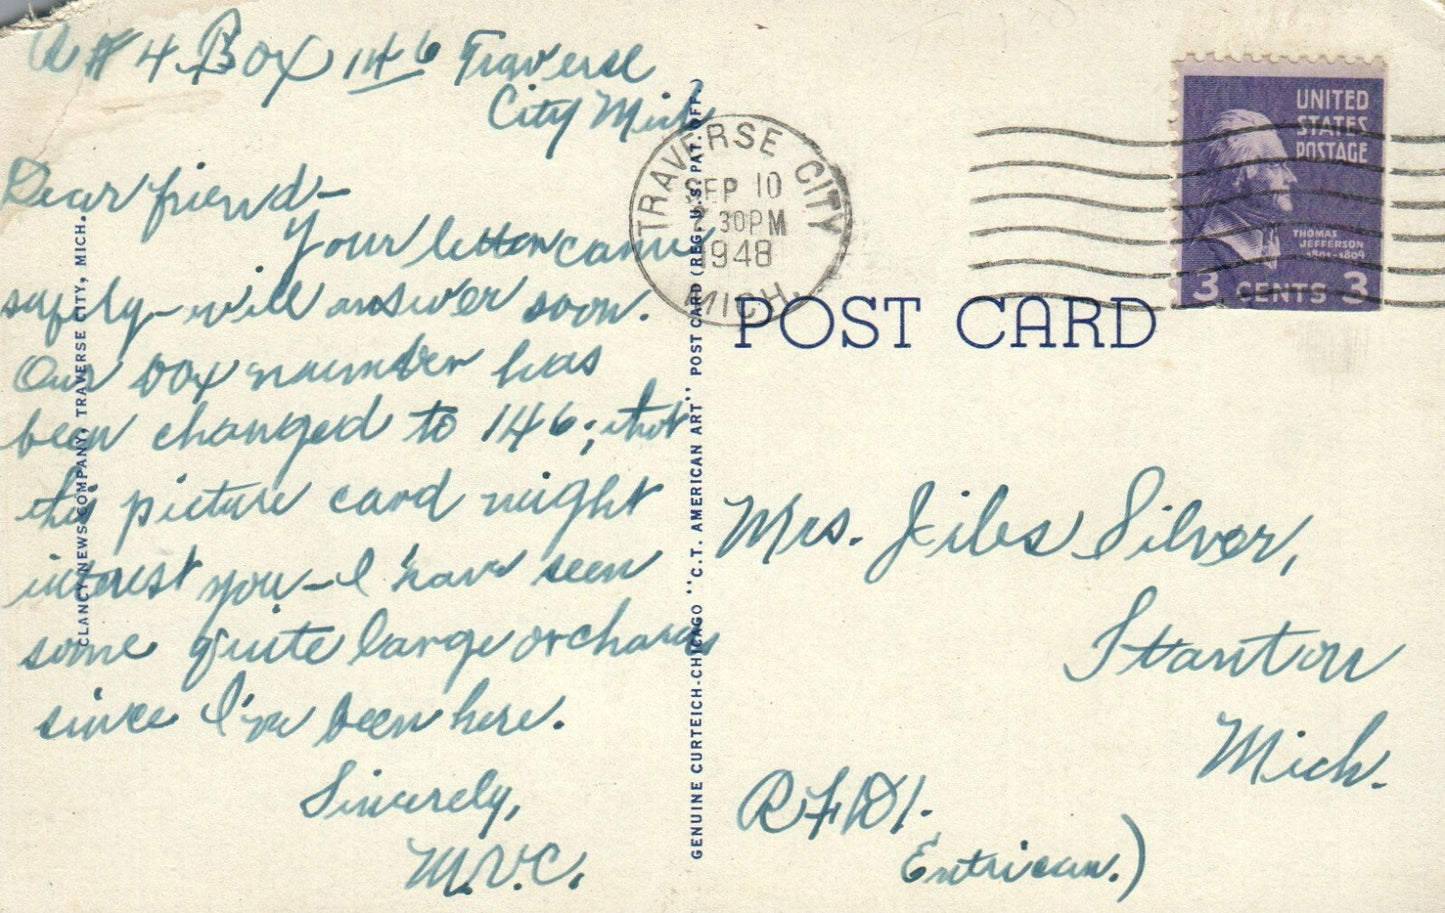 R#4 Box 146 Traverse
City Mich
Dear friend—
Your letter came
safely— will answer soon.
Our box number has
been changed to 146; thot
this picture card might
interest you— I have seen
some quite large orchards
since I've been here.
Sincerely,
M.V.C.
CLANCY NEWS COMPANY, TRAVERSE CITY, MICH.
GENUINE CURTEICH-CHICAGO "C.T. AMERICAN ART" POST CARD (REG. U.S. PAT. OFF.)
TRAVERSE CITY
SEP 10
30PM
1948
MICH.
UNITED
STATES
POSTAGE
THOMAS
JEFFERSON
1801-1809
3 CENTS 3
POST CARD
Mrs. Jiles Silver,
Stanton
Mich.
RFD 1.
Entrican.)